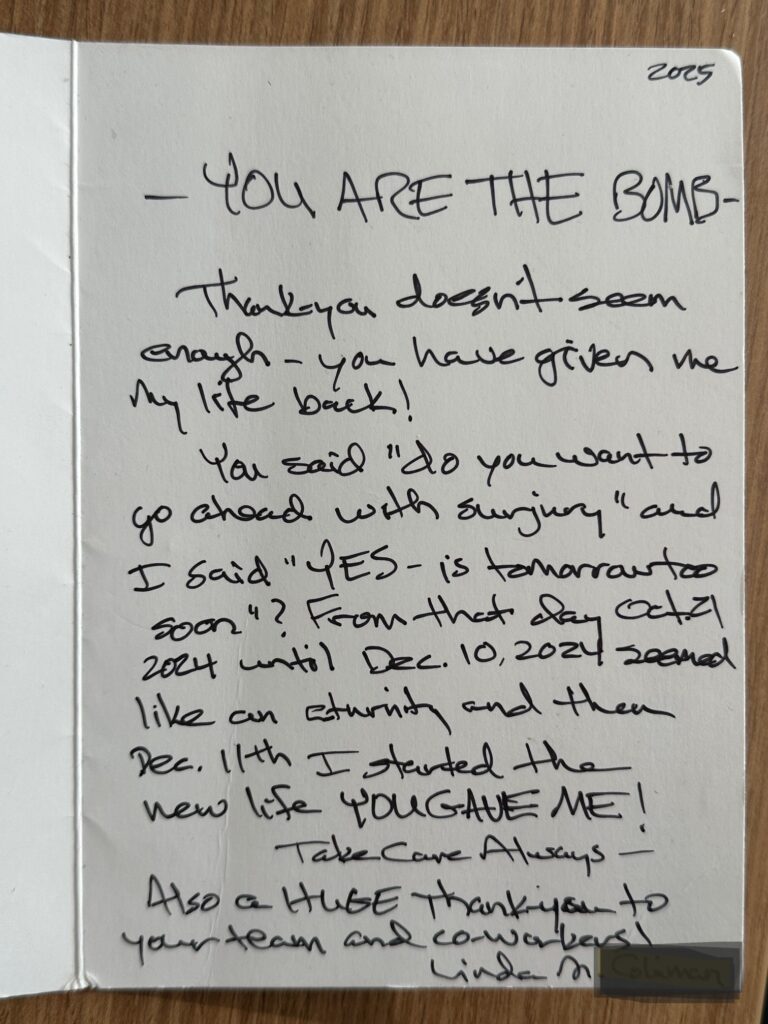 2025
- YOU ARE THE BOMB -
Thank-you doesn't seem
enough - you have given me
my life back!
You said "do you want to
go ahead with surjury" and
I said "YES - is tomorrow too
soon"? From that day Oct. 21
2024 until Dec. 10, 2024 seemed
like an eturnity and then
Dec. 11th I started the
new life YOU GAVE ME!
Take Care Always -
Also a HUGE Thank-you to
your team and co-workers!
Linda M.